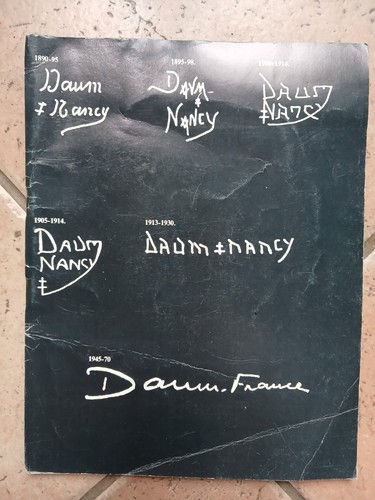 1890-95
Daum
‡ Nancy
1895-98.
DAUM-
‡
NANCY
1900-1914.
DAUM
‡NANCY
1905-1914.
DAUM
NANCY
‡
1913-1930.
DAUM ‡ NANCY
1945-70
Daum-France